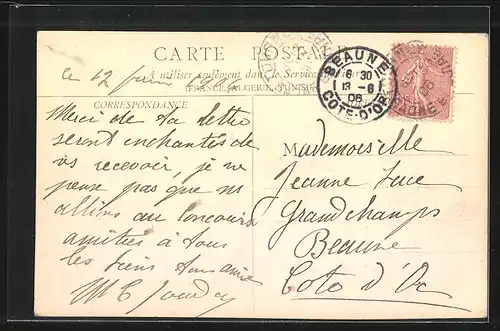 CARTE POSTALE
Ce 12 juin
A utiliser seulement dans le Service
(FRANCE, ALGERIE, TUNISIE)
CORRESPONDANCE
BEAUNE
6 30
13 - 6
06
COTE-D'OR
Merci de ta lettre
seront enchantés de
vs recevoir, je ne
pense pas que ns
allions au Concours
amitiés à tous
les tiens ton amie
M
Mademoiselle
Jeanne
Grandchamps
Beaune
Cote d'Or